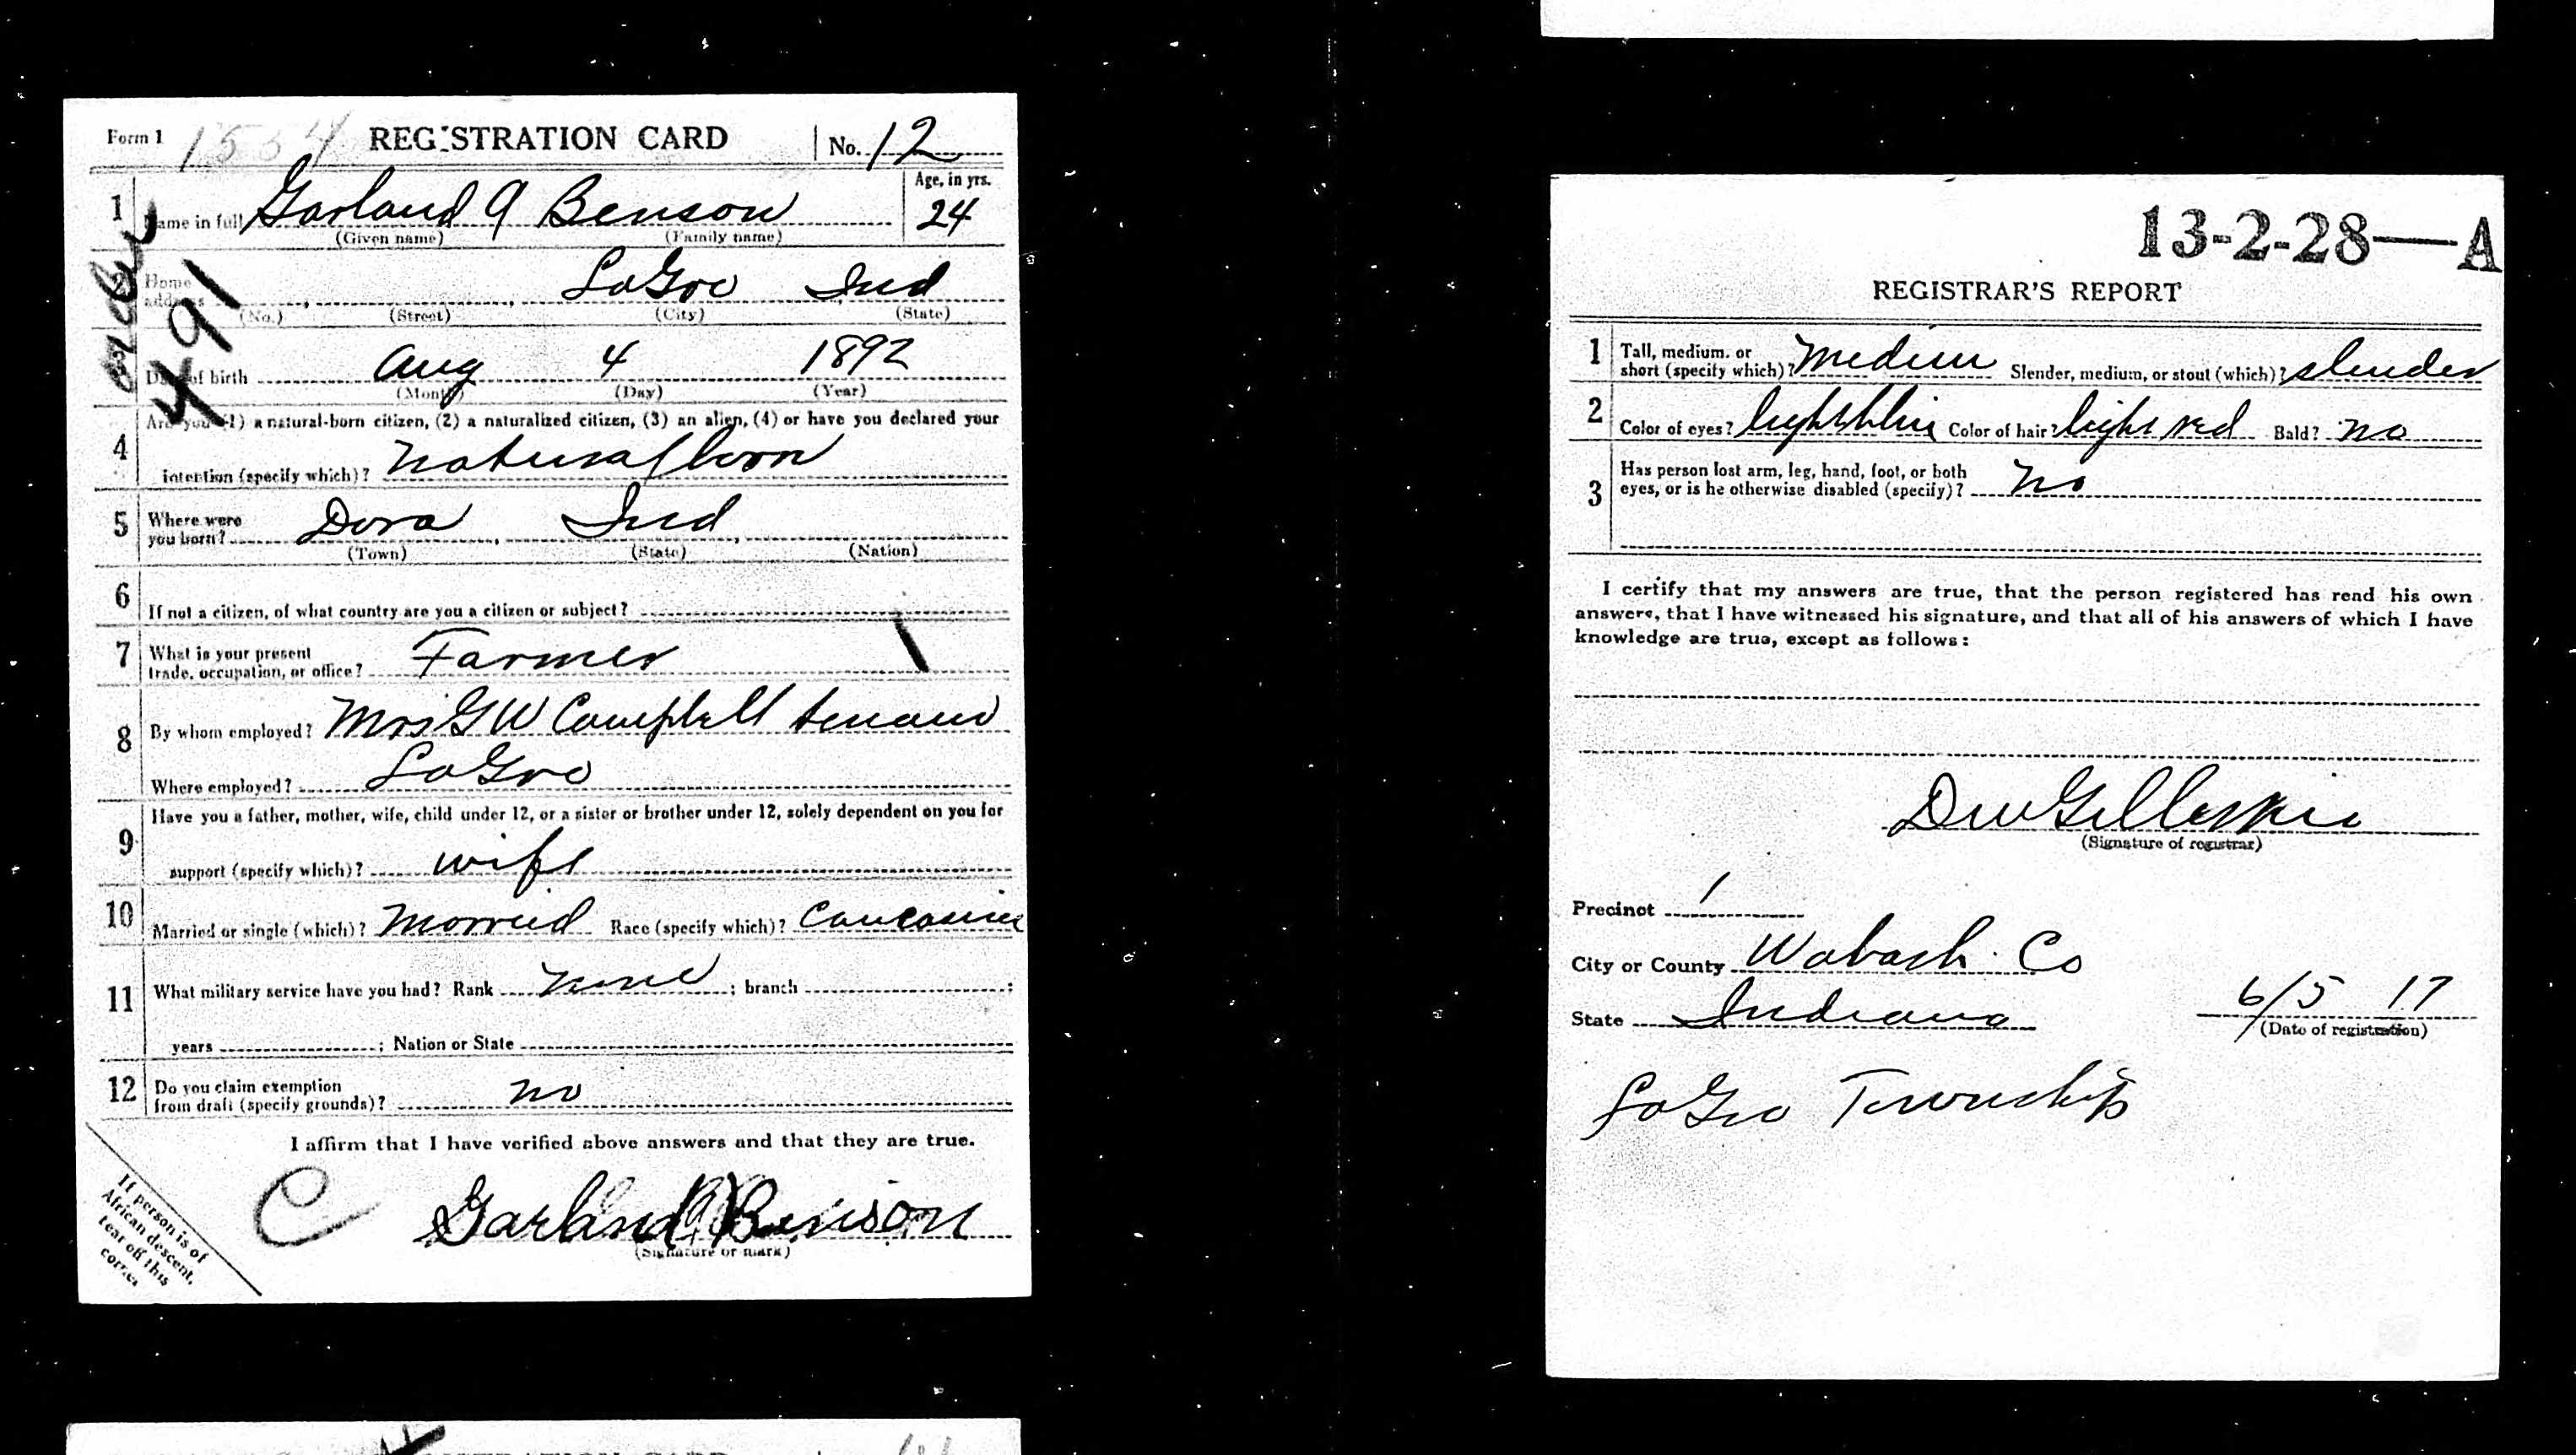 Form 1 1554 REGISTRATION CARD No. 12
1 Name in full Garland A Benson Age, in yrs. 24
(Given name) (Family name)
2 Home address LaGro Ind
(No.) (Street) (City) (State)
491
Date of birth Aug 4 1892
(Month) (Day) (Year)
4 Are you (1) a natural-born citizen, (2) a naturalized citizen, (3) an alien, (4) or have you declared your
intention (specify which)? Natural born
5 Where were you born? Dora Ind
(Town) (State) (Nation)
6 If not a citizen, of what country are you a citizen or subject?
7 What is your present trade, occupation, or office? Farmer
8 By whom employed? Mrs G W Campbell tenant
Where employed? LaGro
9 Have you a father, mother, wife, child under 12, or a sister or brother under 12, solely dependent on you for
support (specify which)? wife
10 Married or single (which)? Married Race (specify which)? Caucasian
11 What military service have you had? Rank none ; branch ;
years ; Nation or State
12 Do you claim exemption from draft (specify grounds)? no
I affirm that I have verified above answers and that they are true.
C Garland A Benson
(Signature or mark)
If person is of
African descent,
tear off this
corner
13-2-28—A
REGISTRAR'S REPORT
1 Tall, medium, or short (specify which)? Medium Slender, medium, or stout (which)? slender
2 Color of eyes? light blue Color of hair? light red Bald? no
3 Has person lost arm, leg, hand, foot, or both eyes, or is he otherwise disabled (specify)? no
I certify that my answers are true, that the person registered has read his own
answers, that I have witnessed his signature, and that all of his answers of which I have
knowledge are true, except as follows:
D W Gilleskie
(Signature of registrar)
Precinct 1
City or County Wabash Co
State Indiana 6/5 17
(Date of registration)
LaGro Township